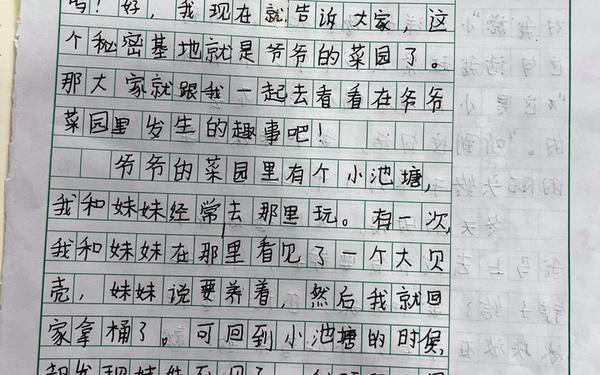 吗！好，我现在就告诉大家，这
个秘密基地就是爷爷的菜园了。
那大家就跟我一起去看看在爷爷
菜园里发生的趣事吧！
爷爷的菜园里有个小池塘，
我和妹妹经常去那里玩。有一次，
我和妹妹在那里看见了一个大贝
壳，妹妹说要养着，然后我就回
家拿桶了。可回到小池塘的时候，
却发现妹妹不见了